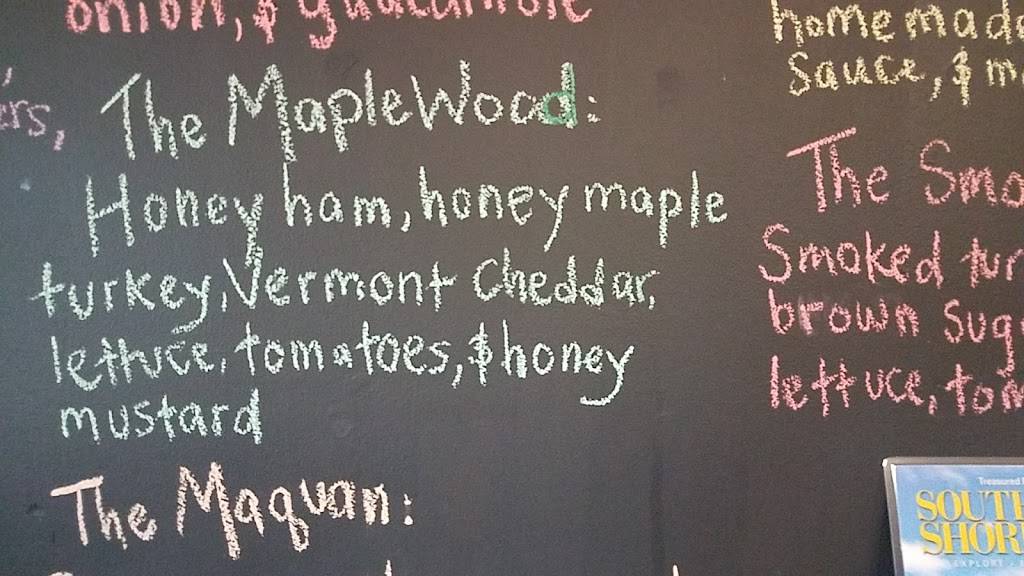 onion, & guacamole
The MapleWood:
Honey ham, honey maple
turkey, Vermont Cheddar,
lettuce, tomatoes, & honey
mustard
The Maquan:
sauce, &
The
Smoked
brown
lettuce,
Treasured
SOUTH
SHOR
EXPLORE